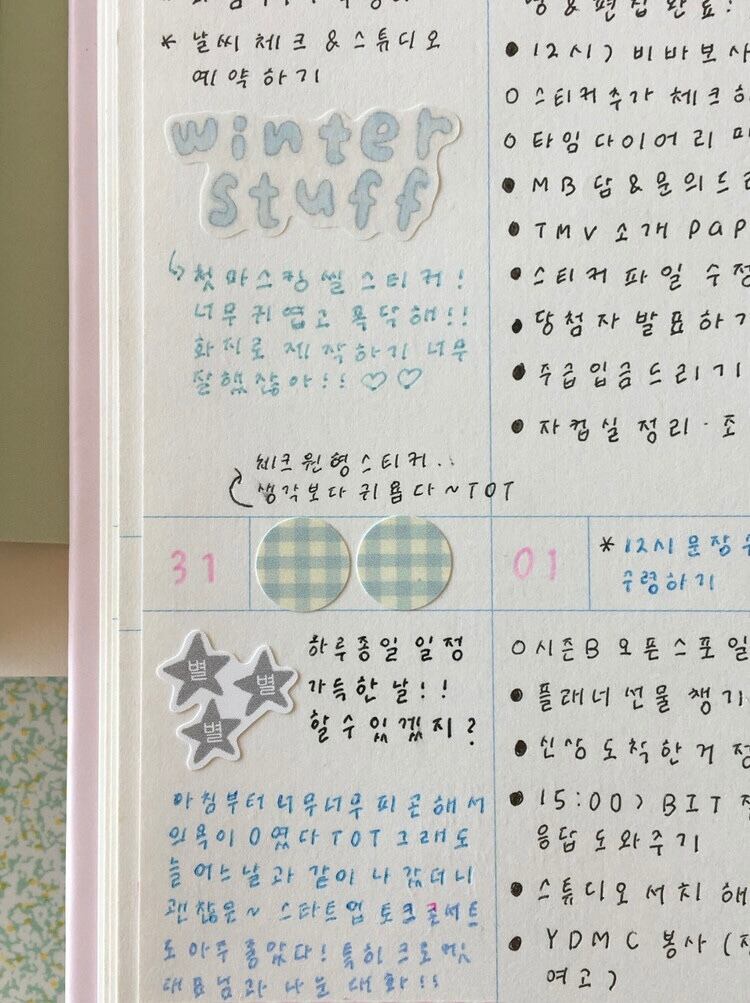 * 날씨 체크 & 스튜디오
예약하기
winter
stuff
첫 마스킹 씰 스티커!
너무 귀엽고 뽁닥해!!
화지로 제작하기 너무
잘했잖아!! ♡♡
체크 원형 스티커..
생각보다 귀욤다~TOT
31
別
別
別
하루종일 일정
가득한 날!!
할 수 있겠지?
아침부터 너무너무 피곤해서
의욕이 0였다 TOT 그래도
늘 어느날과 같이 나갔더니
괜찮은~ 스타트업 토크콘서트
도 아주 좋았다! 특히
대표님과 나눈 대화!!
& 편집 완료!
● 12시> 비바보사
○ 스티커 추가 체크하
○ 타임 다이어리
● MB 답 & 문의드리
● TMV 소개 pap
● 스티커 파일 수정
● 당첨자 발표하기
● 주급 입금드리기
● 자컵실 정리·조
01
* 12시 문장
수령하기
○ 시즌B 오픈 스포일
● 플래너 선물 챙기
● 신상 도착한 거 정
● 15:00> BIT
응답 도와주기
● 스튜디오 서치 해
● YDMC 봉사 (
여고)